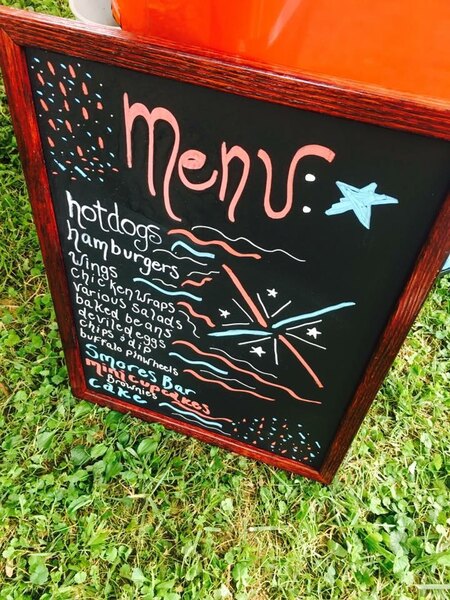 menu:
hotdogs
hamburgers
wings
chicken wraps
various salads
baked beans
deviled eggs
chips & dip
buffalo pinwheels
Smores Bar
mini cupcakes
Brownies
cake